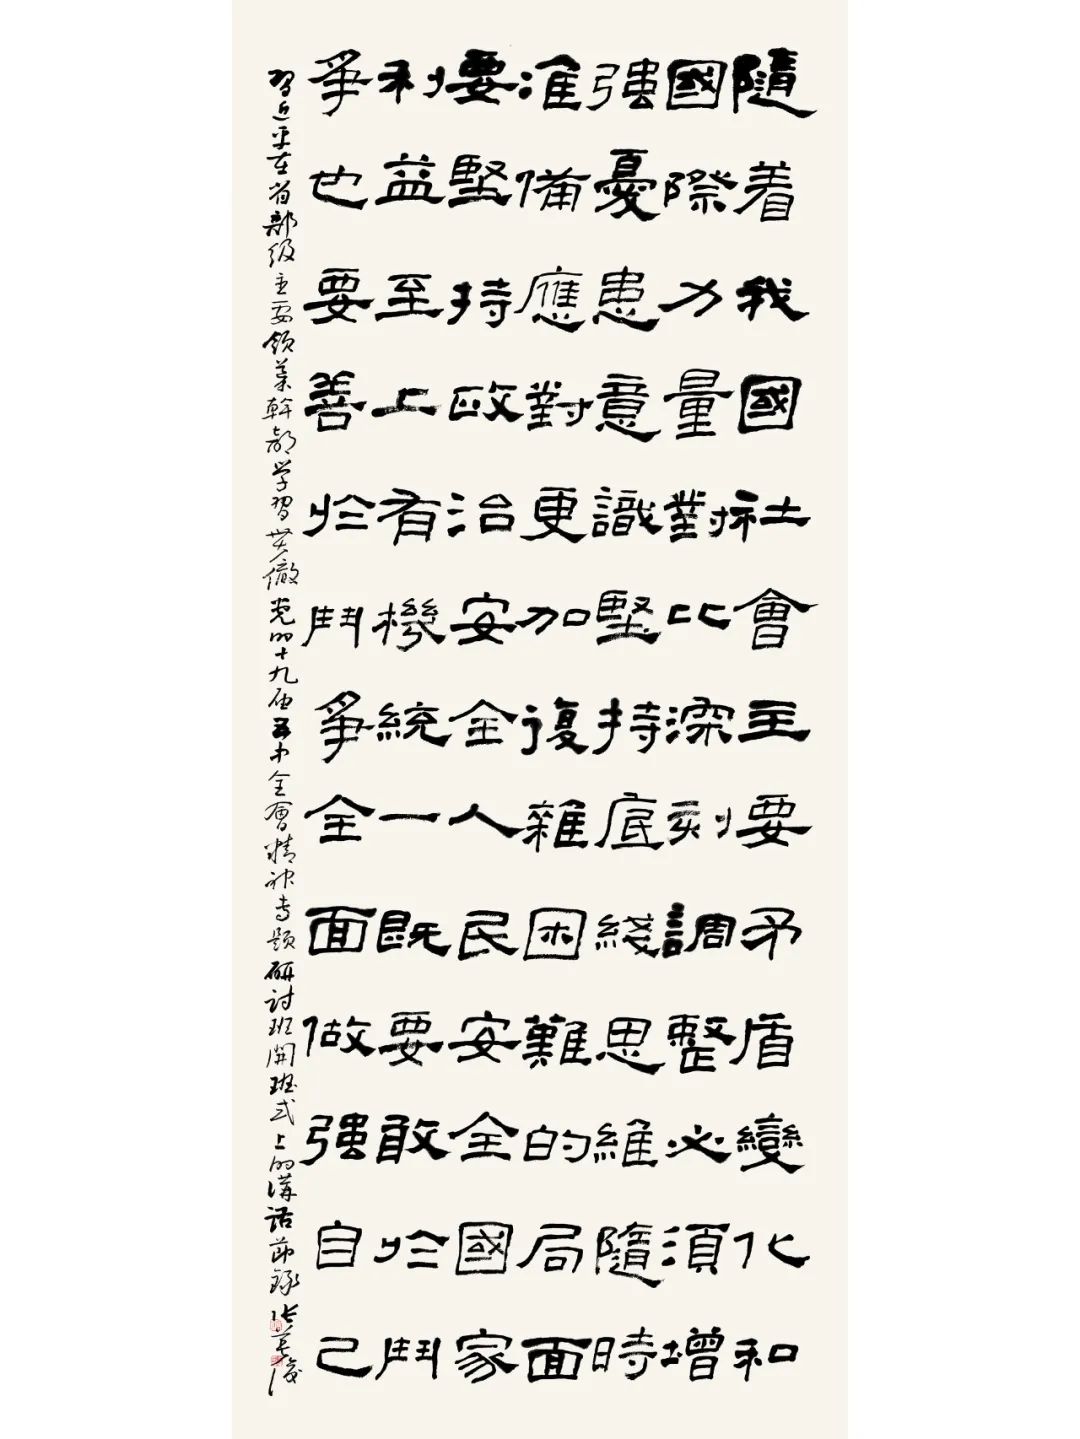 隨着我國社會主要矛盾變化和
國際力量對比深刻調整必須增
強憂患意識堅持底綫思維隨時
准備應對更加復雜困難的局面
要堅持政治安全人民安全國家
利益至上有機統一既要敢於鬥
爭也要善於鬥爭全面做強自己
習近平在省部級主要領導幹部学習貫徹党的十九届五中全會精神专題研討班開班式上的講話節錄